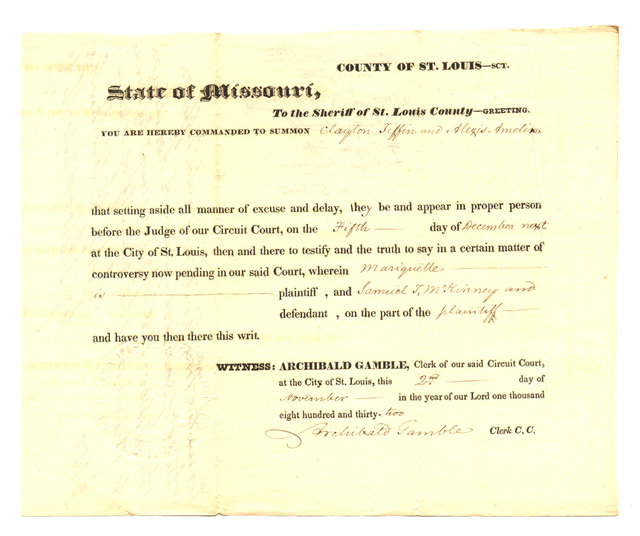 COUNTY OF ST. LOUIS—SCT.
State of Missouri,
To the Sheriff of St. Louis County—GREETING.
YOU ARE HEREBY COMMANDED TO SUMMON Clayton Tiffin and Alexis Amelin
that setting aside all manner of excuse and delay, they be and appear in proper person
before the Judge of our Circuit Court, on the Fifth day of December next
at the City of St. Louis, then and there to testify and the truth to say in a certain matter of
controversy now pending in our said Court, wherein Mariguette
is plaintiff , and Samuel T. McKinney and
defendant , on the part of the plaintiff
and have you then there this writ.
WITNESS: ARCHIBALD GAMBLE, Clerk of our said Circuit Court,
at the City of St. Louis, this 2nd day of
November in the year of our Lord one thousand
eight hundred and thirty-two
Archibald Gamble Clerk C. C.